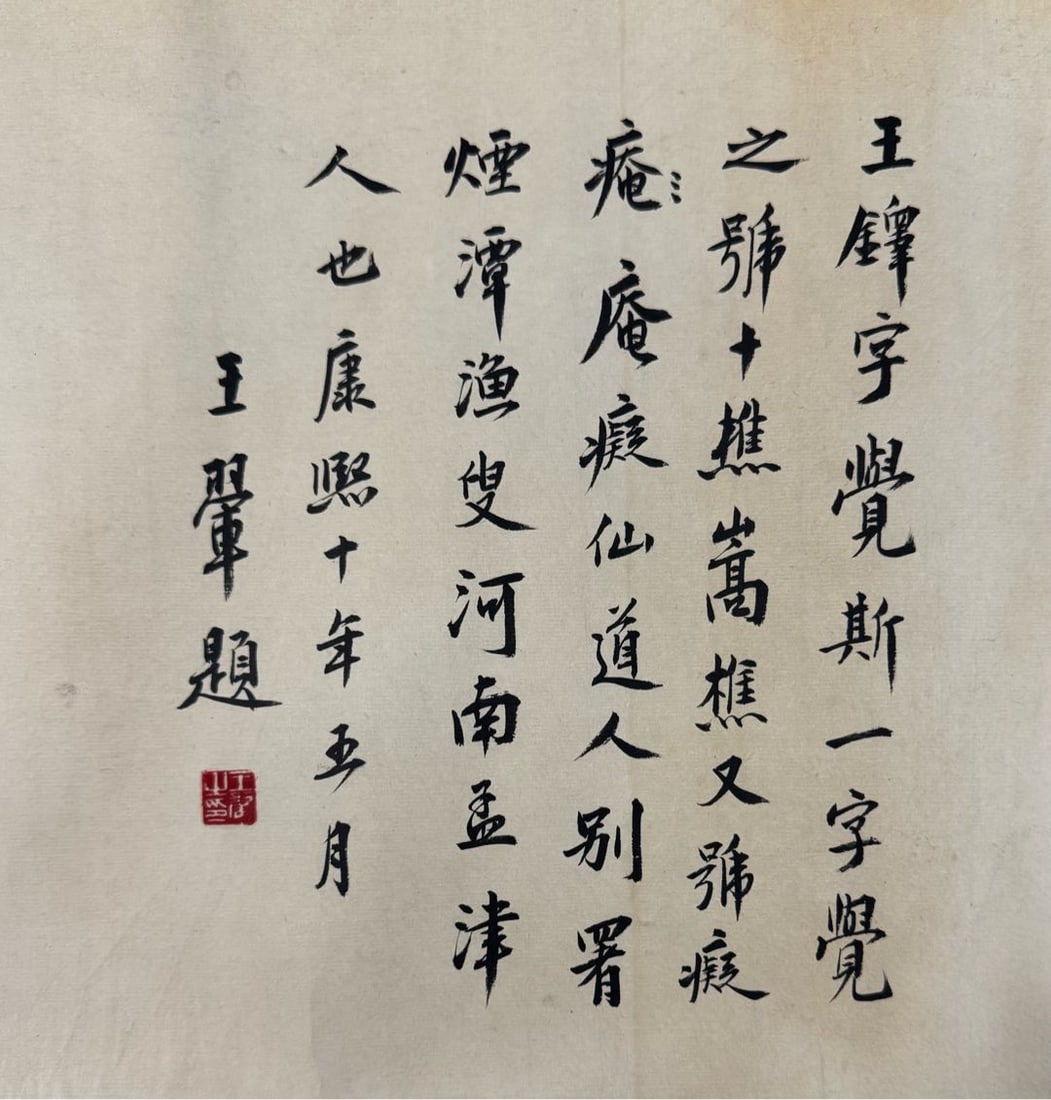 王鐸字覺斯一字覺
之號十樵嵩樵又號癡
痷庵癡仙道人別署
煙潭漁叟河南孟津
人也康熙十年五月
王翬題